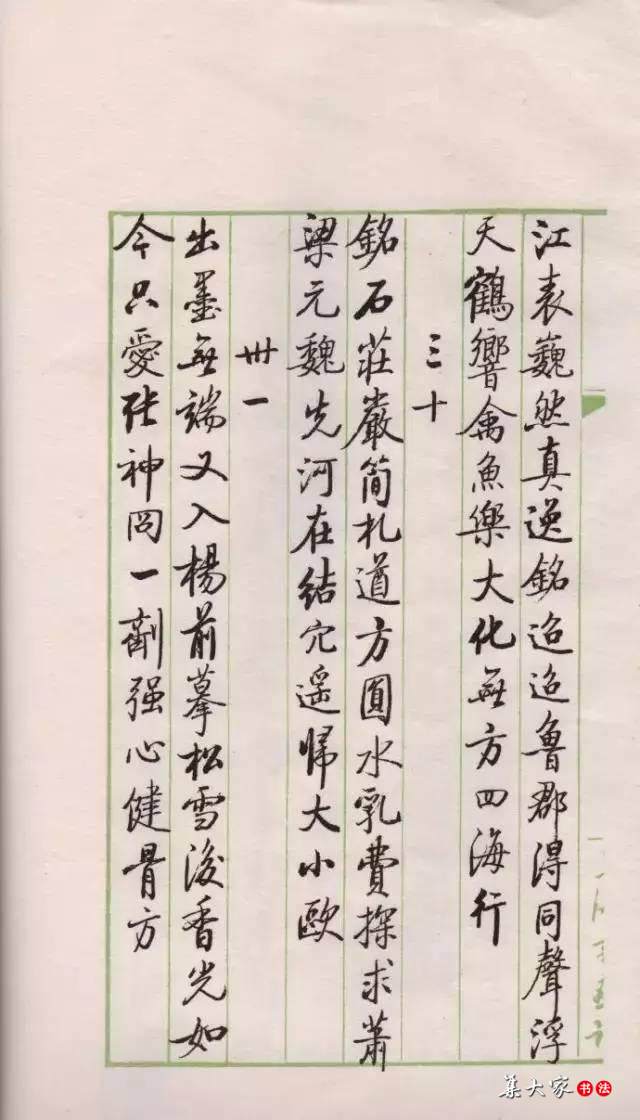 江表巍然真逸銘迢迢魯郡得同聲浮
天鶴響禽魚樂大化無方四海行
三十
銘石莊嚴簡札道方圓水乳費探求蕭
梁元魏先河在結穴遥歸大小歐
卅一
出墨無端又入楊前摹松雪後香光如
今只愛張神冏一劑强心健骨方
集大家书法